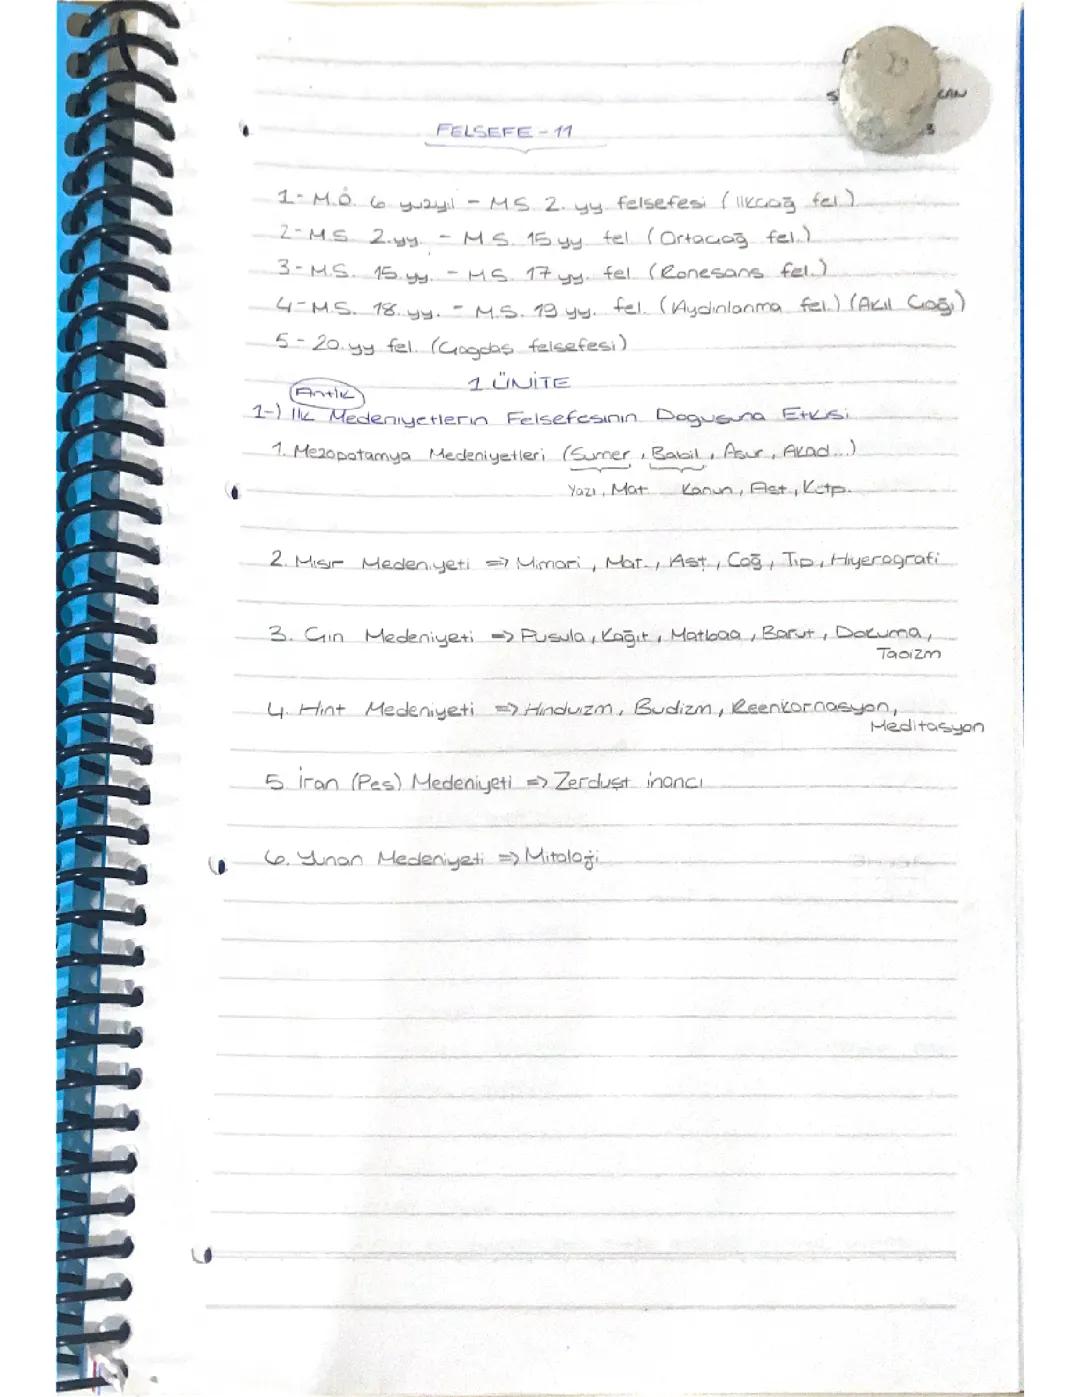 FELSEFE - 11
1- M.Ö. 6 yüzyıl - MS. 2. yy. felsefesi (İlkçağ fel.)
2- M.S. 2.yy. - M.S. 15 yy. fel (Ortaçağ fel.)
3- M.S. 15. yy. - M.S. 17 yy. fel. (Rönesans fel.)
4- M.S. 18. yy. - M.S. 19 yy. fel. (Aydınlanma fel.) (Akıl Çağı)
5 - 20. yy fel. (Çağdaş felsefesi)
1. ÜNİTE
Antik
1-) İlk Medeniyetlerin Felsefesinin Doğuşuna Etkisi
1. Mezopotamya Medeniyetleri (Sümer, Babil, Asur, Akad...)
Yazı, Mat. Kanun, Ast., Kütp.
2. Mısır Medeniyeti => Mimari, Mat., Ast., Coğ, Tıp, Hiyerografi
3. Çin Medeniyeti => Pusula, Kağıt, Matbaa, Barut, Dokuma,
Taoizm
4. Hint Medeniyeti => Hinduizm, Budizm, Reenkarnasyon,
Meditasyon
5. İran (Pes) Medeniyeti => Zerdüşt inancı
6. Yunan Medeniyeti => Mitoloji